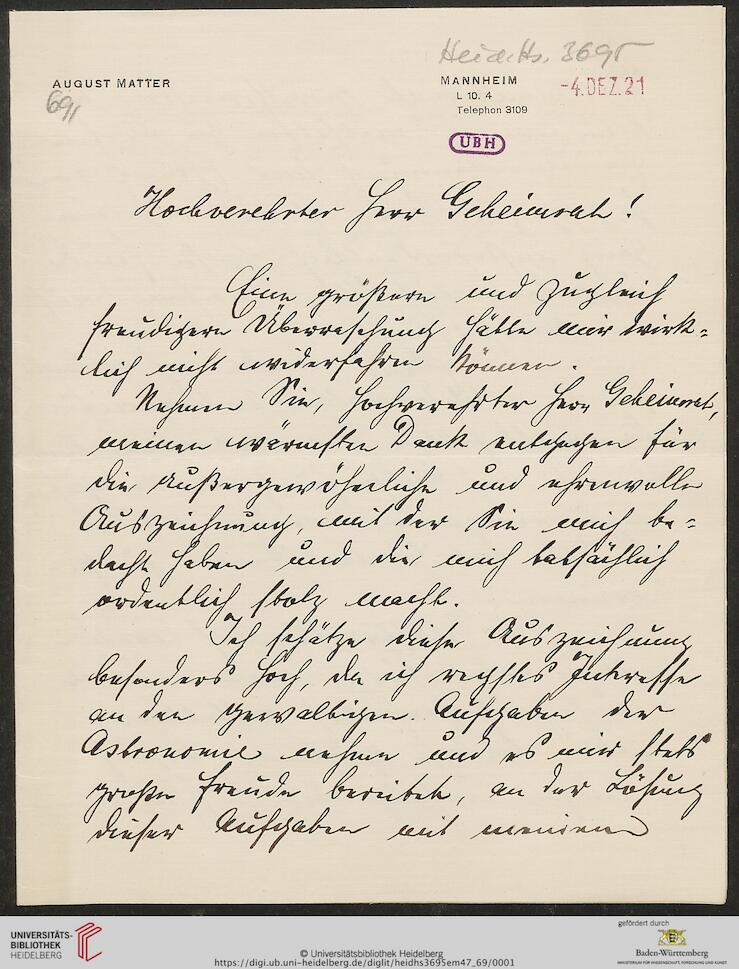 Heid. Hs. 3695
AUGUST MATTER
MANNHEIM
L 10. 4
Telephon 3109
-4. DEZ. 21
69,
UBH
Hochverehrter Herr Geheimrath!
Eine größere und zugleich
freudigere Überraschung hätte mir wirk=
lich nicht widerfahren können.
Nehmen Sie, hochverehrter Herr Geheimrat,
meinen wärmsten Dank entgegen für
die außergewöhnliche und ehrenvolle
Auszeichnung, mit der Sie mich be=
dacht haben und die mich tatsächlich
ordentlich stolz macht.
Ich schätze diese Auszeichnung
besonders hoch, da ich regstes Interesse
an den gewaltigen Aufgaben der
Astronomie nehme und es mir stets
große Freude bereitet, an der Lösung
dieser Aufgaben mit meinen
UNIVERSITÄTS-
BIBLIOTHEK
HEIDELBERG
© Universitätsbibliothek Heidelberg
https://digi.ub.uni-heidelberg.de/diglit/heidhs3695em47_69/0001
gefördert durch
Baden-Württemberg
MINISTERIUM FÜR WISSENSCHAFT, FORSCHUNG UND KUNST